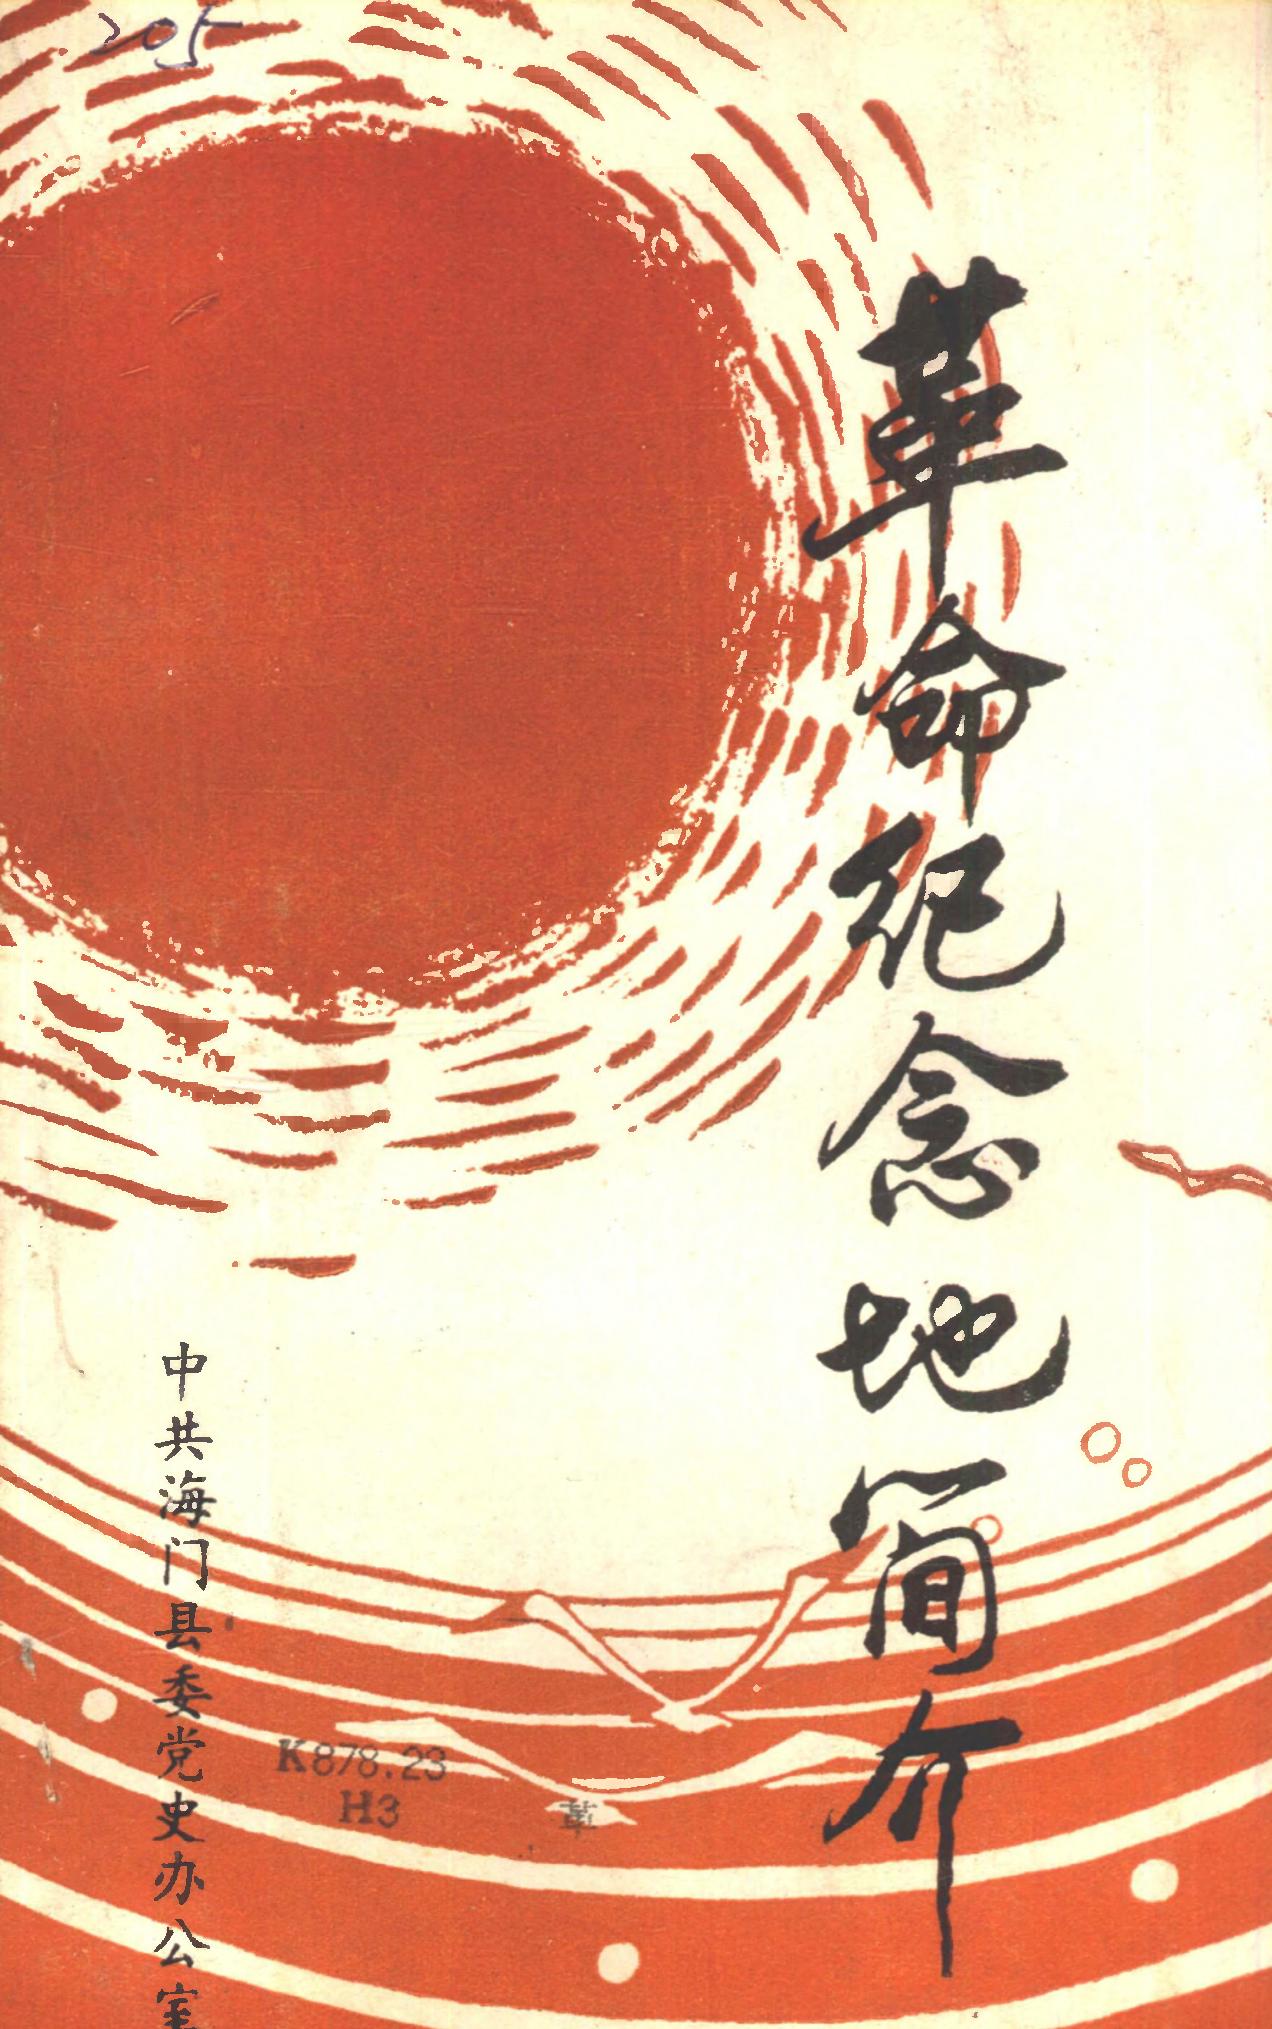 205
革命纪念地简介
中共海门县委党史办公室
K878.23
H3
革